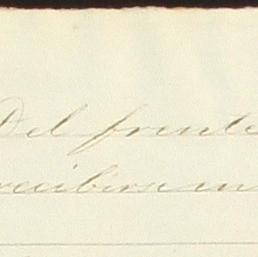 Del frente
recibirse en